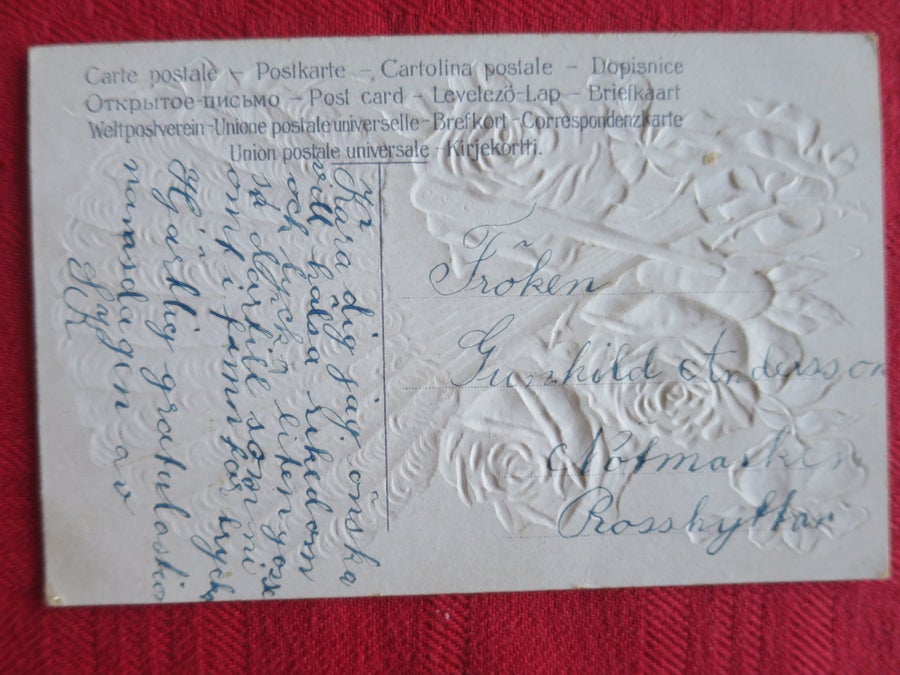 Carte postale – Postkarte – Cartolina postale – Dopisnice
Открытое-письмо – Post card – Levelező-Lap – Briefkaart
Weltpostverein-Unione postale universelle-Brefkort-Correspondenzkarte
Union postale universale – Kirjekortti.
Kära dig jag önska
vill hälsa rikedom
och lycka liten
så därtill som ni
omt i famn tar
Hjärtlig gratulastion
namsdagen av
HK
Fröken
Gunhild Andersson
Nötmarken
Rosshyttan